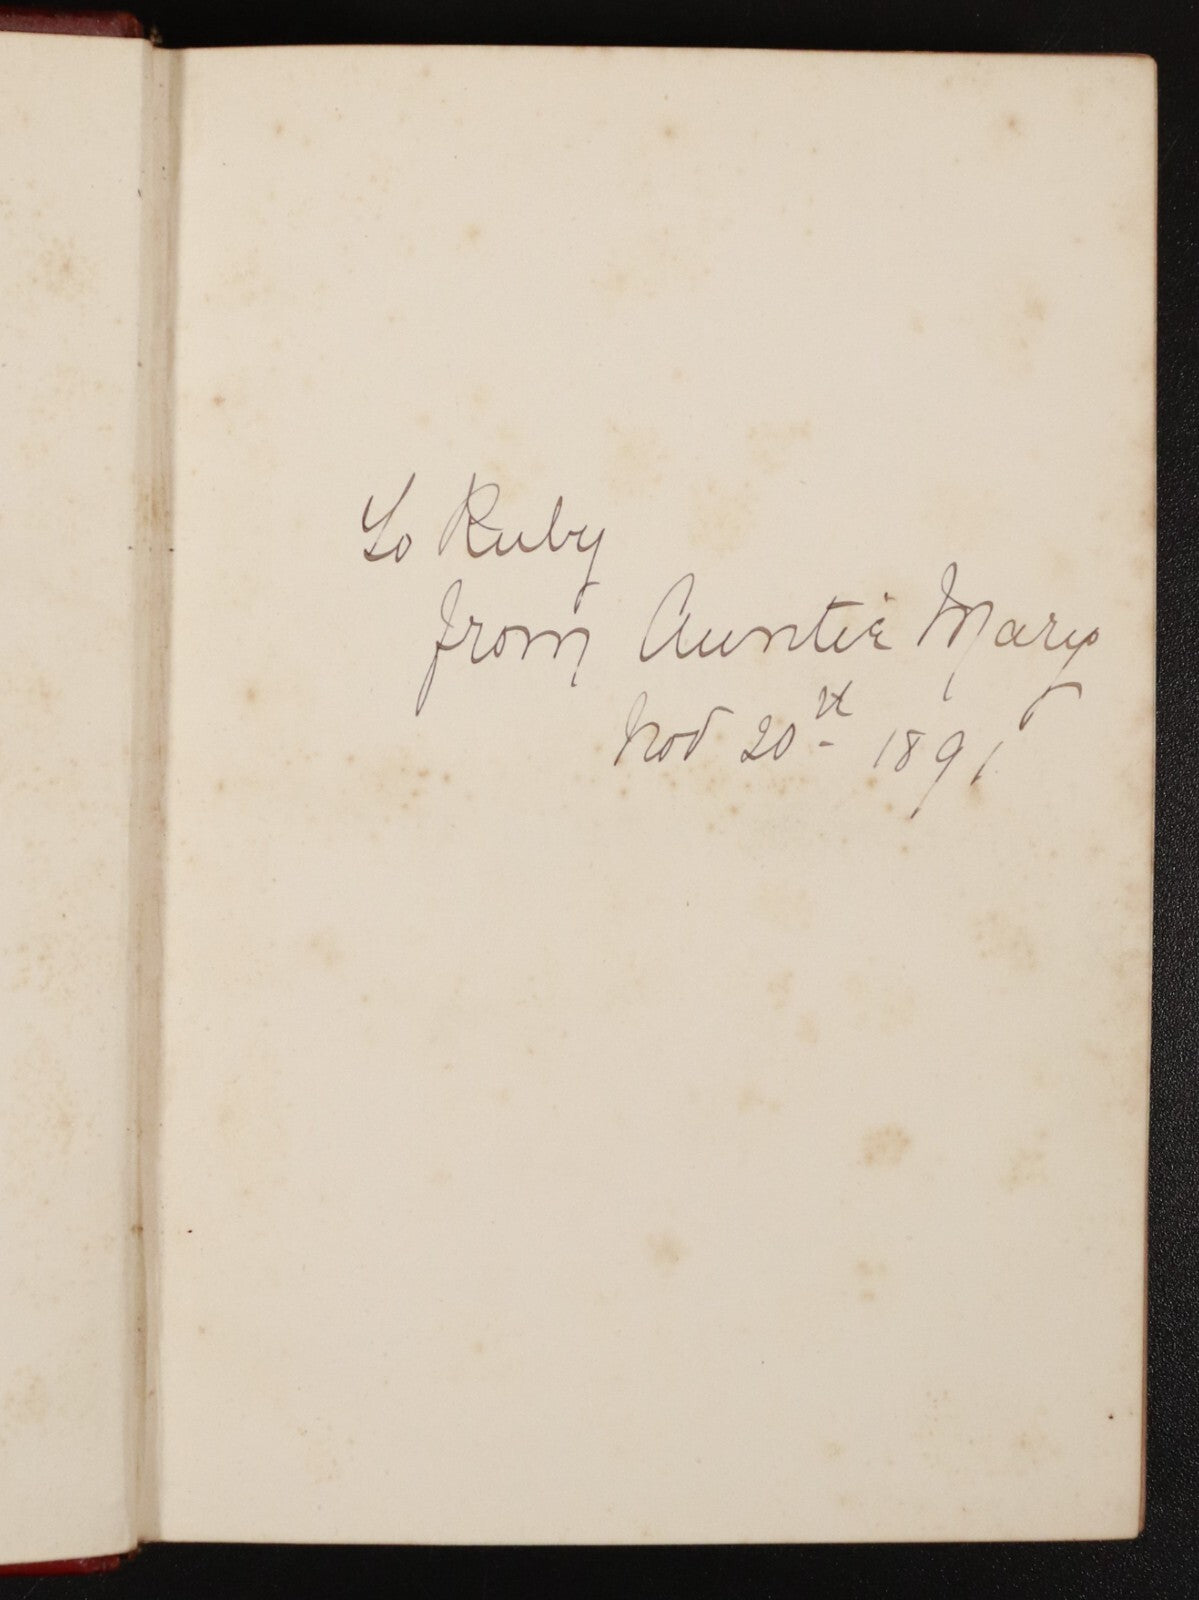 To Ruby
from Auntie Mary
Nov 20th 1891